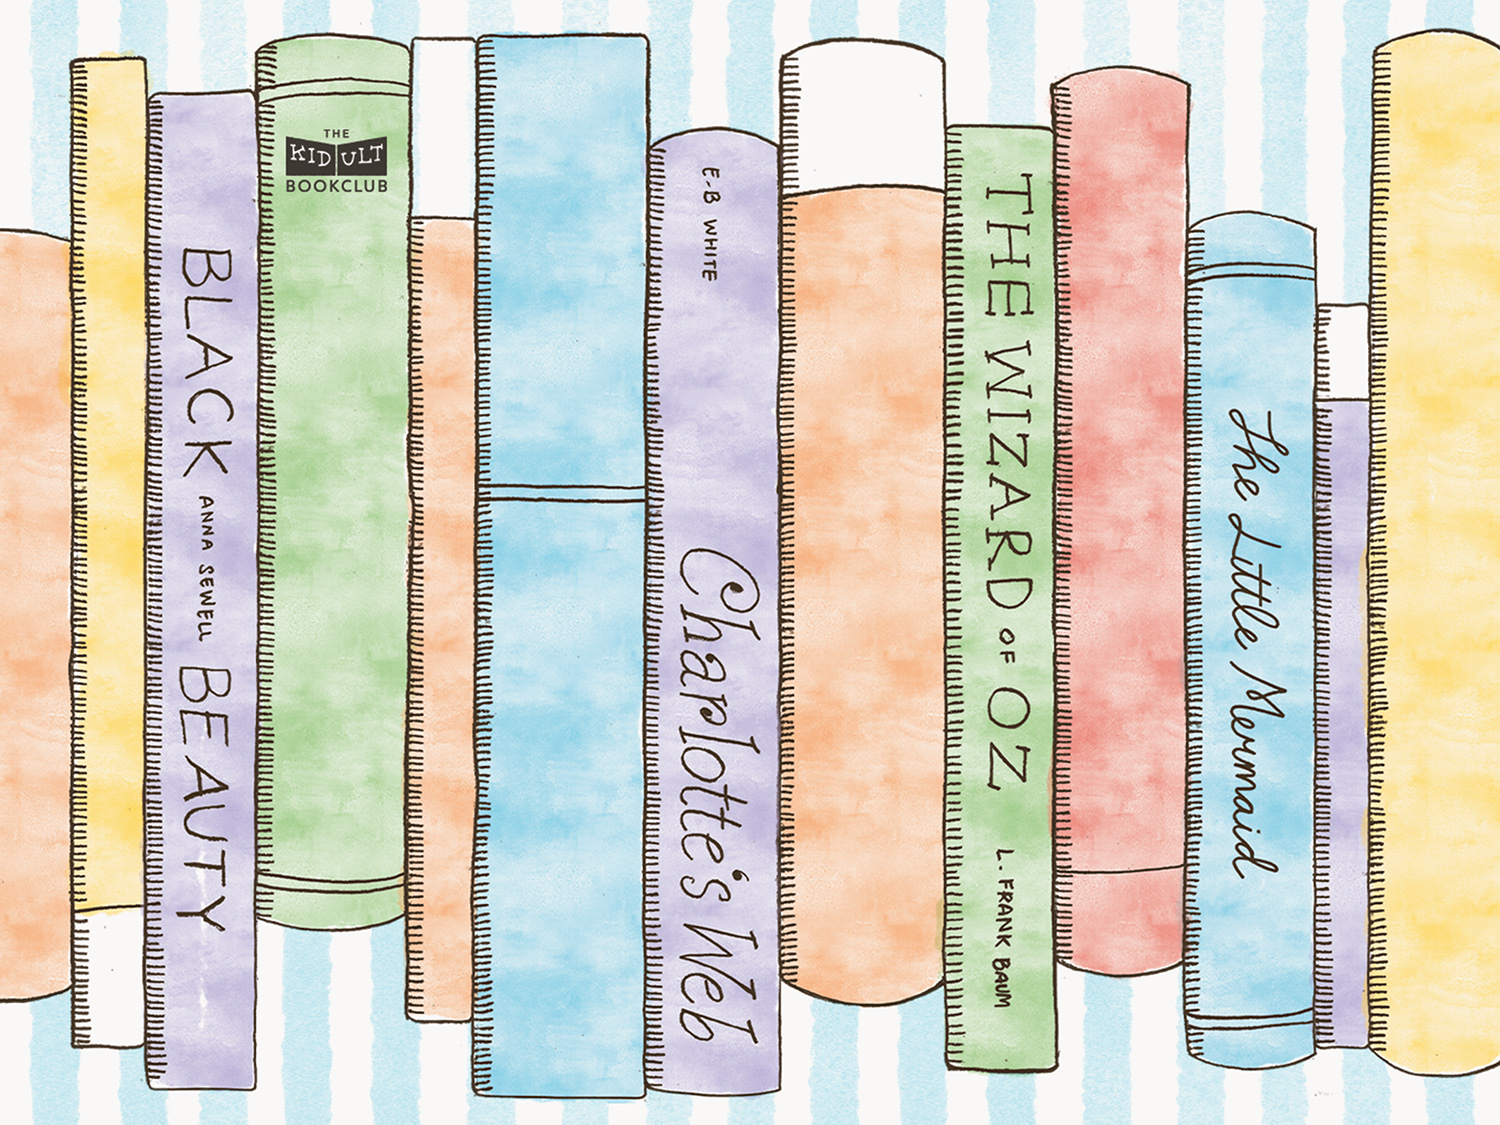 BLACK ANNA SEWELL BEAUTY
THE
KID ULT
BOOKCLUB
E-B WHITE
Charlotte's Web
THE WIZARD OF OZ L. FRANK BAUM
The Little Mermaid